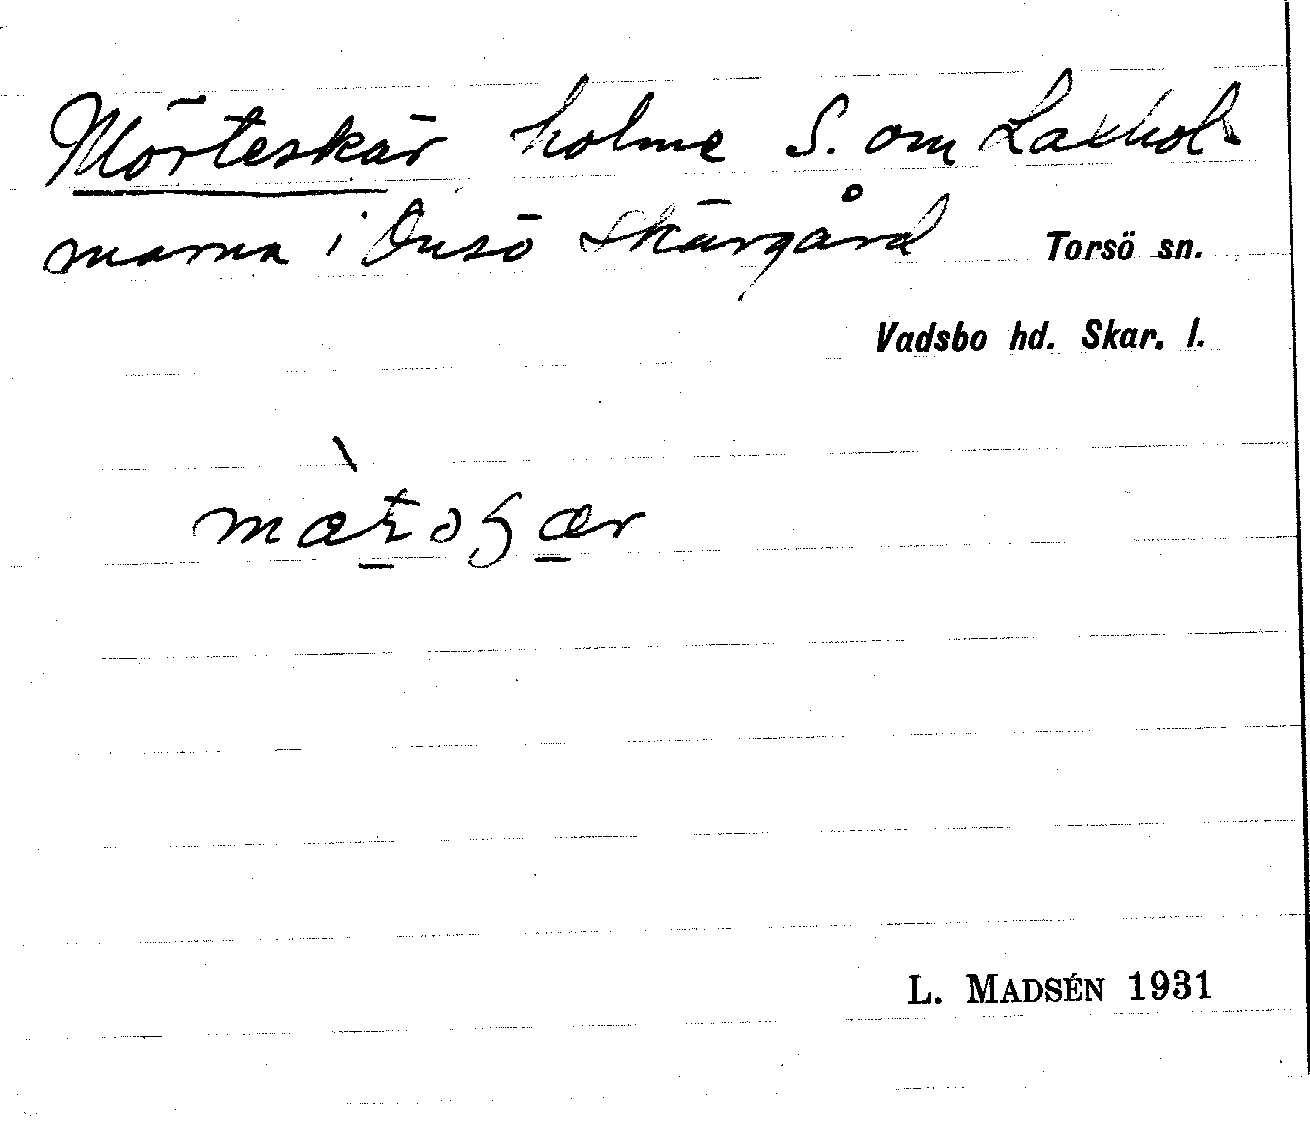 Mörteskär holme S. om Laxhol-
marna i Onsö skärgård Torsö sn.
Vadsbo hd. Skar. l.
L. MADSÉN 1931